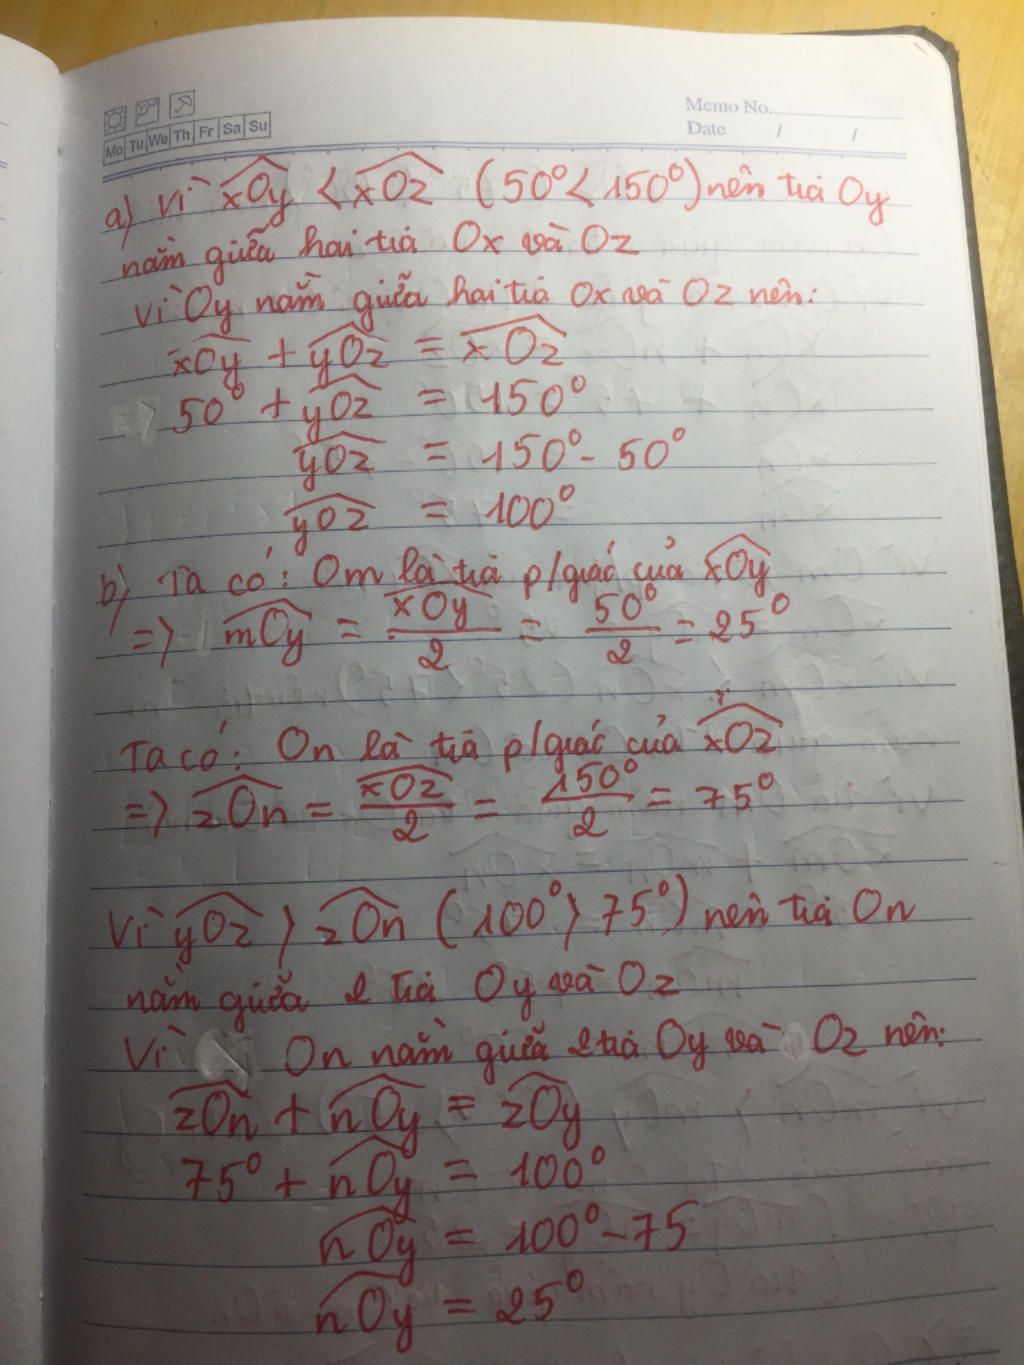 Memo No.
Date / /
Mo Tu We Th Fr Sa Su
a) Vì xOy < xOz (50° < 150°) nên tia Oy
nằm giữa hai tia Ox và Oz
Vì Oy nằm giữa hai tia Ox và Oz nên:
xOy + yOz = xOz
50° + yOz = 150°
yOz = 150° - 50°
yOz = 100°
b) Ta có: Om là tia p/giác của xOy
=> mOy = xOy/2 = 50°/2 = 25°
Ta có: On là tia p/giác của xOz
=> zOn = xOz/2 = 150°/2 = 75°
Vì yOz > zOn (100° > 75°) nên tia On
nằm giữa 2 tia Oy và Oz
Vì On nằm giữa 2 tia Oy và Oz nên:
zOn + nOy = zOy
75° + nOy = 100°
nOy = 100° - 75
nOy = 25°